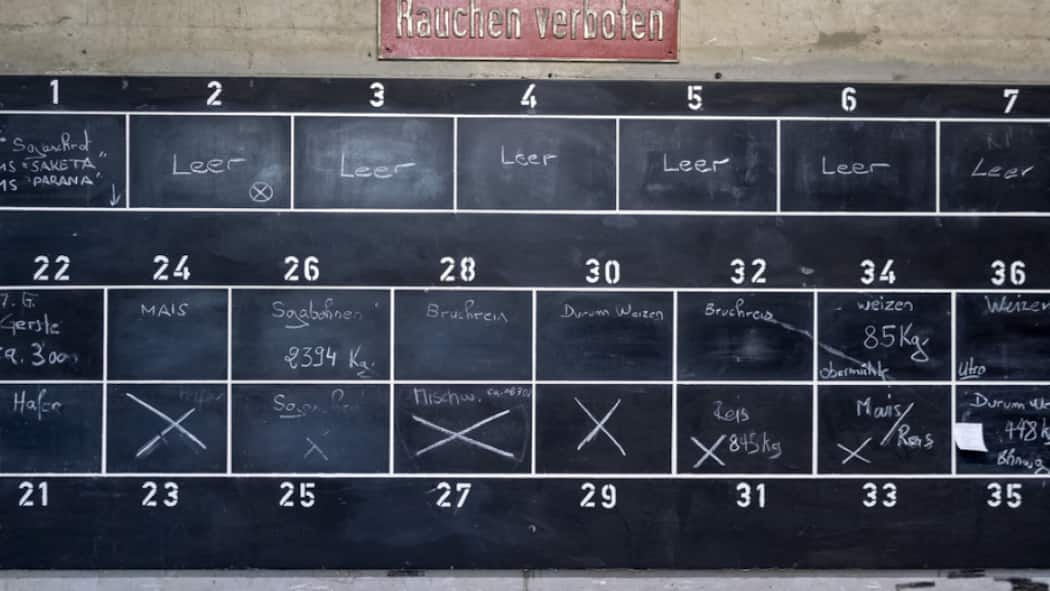 Rauchen verboten
1 2 3 4 5 6 7
Sojaschrot
MS "SAKETA"
MS "PARANA"
Leer
Leer
Leer
Leer
Leer
Leer
22 24 26 28 30 32 34 36
7. G.
Gerste
ca. 300
MAIS
Sojabohnen
2394 Kg.
Bruchreis
Durum Weizen
Bruchreis
weizen
85 Kg.
Obermühle
Weizen
Hafer
Mischw.
Reis
845 kg
Mais/
Reis
Durum
448 k
21 23 25 27 29 31 33 35